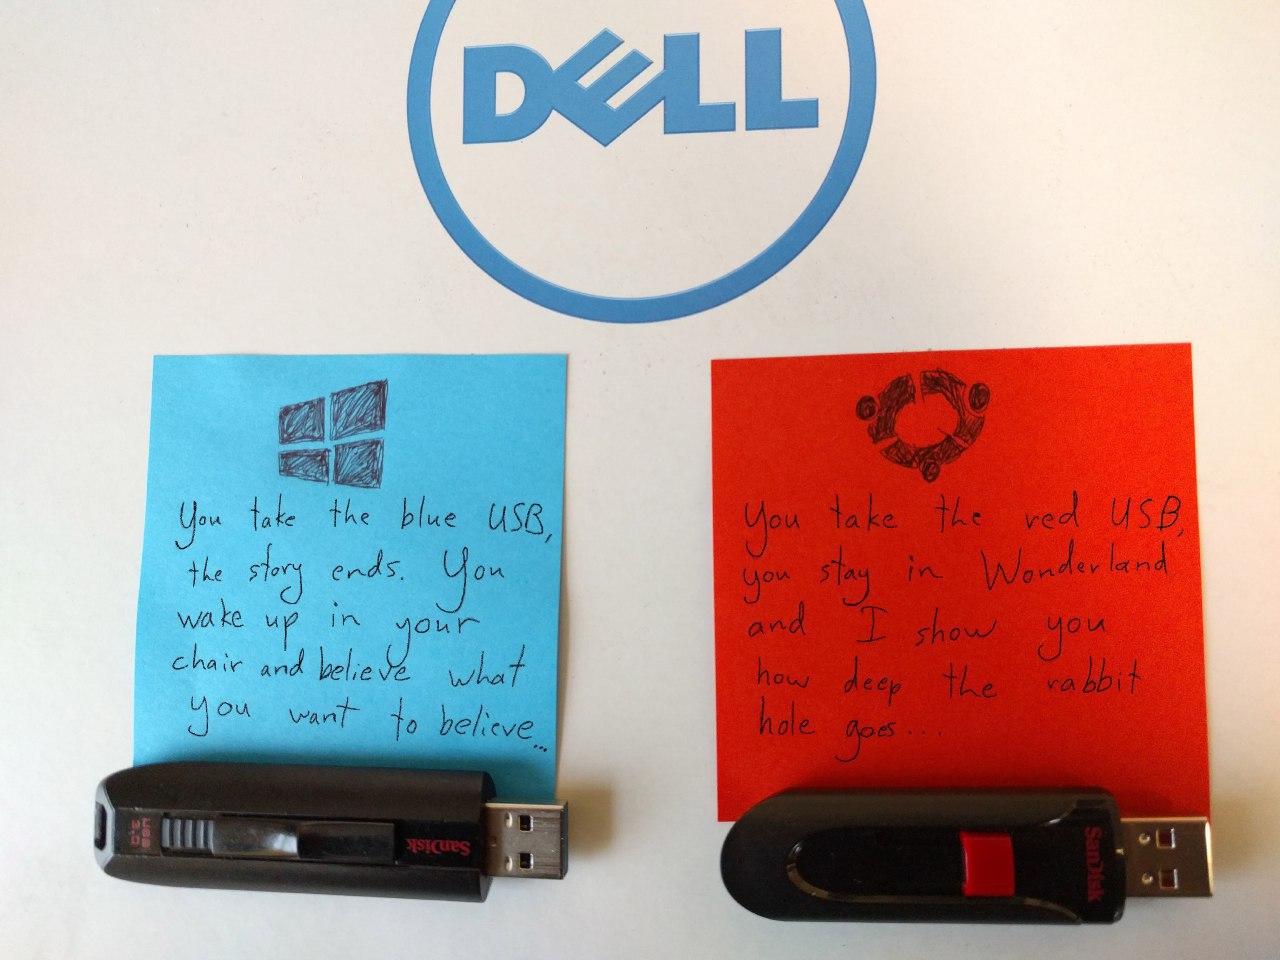 DELL
You take the blue USB,
the story ends. You
wake up in your
chair and believe what
you want to believe...
You take the red USB,
you stay in Wonderland
and I show you
how deep the rabbit
hole goes...
USB
3.0
SanDisk
SanDisk